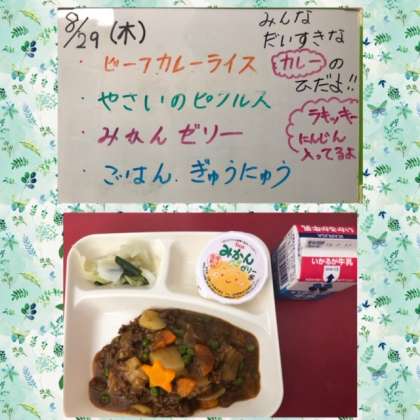 8/29(木)
・ビーフカレーライス
・やさいのピクルス
・みかんゼリー
・ごはん、ぎゅうにゅう
みんな
だいすきな
カレーの
ひだよ!!
ラッキー
にんじん
入ってるよ
みかん
ゼリー
いかるが牛乳